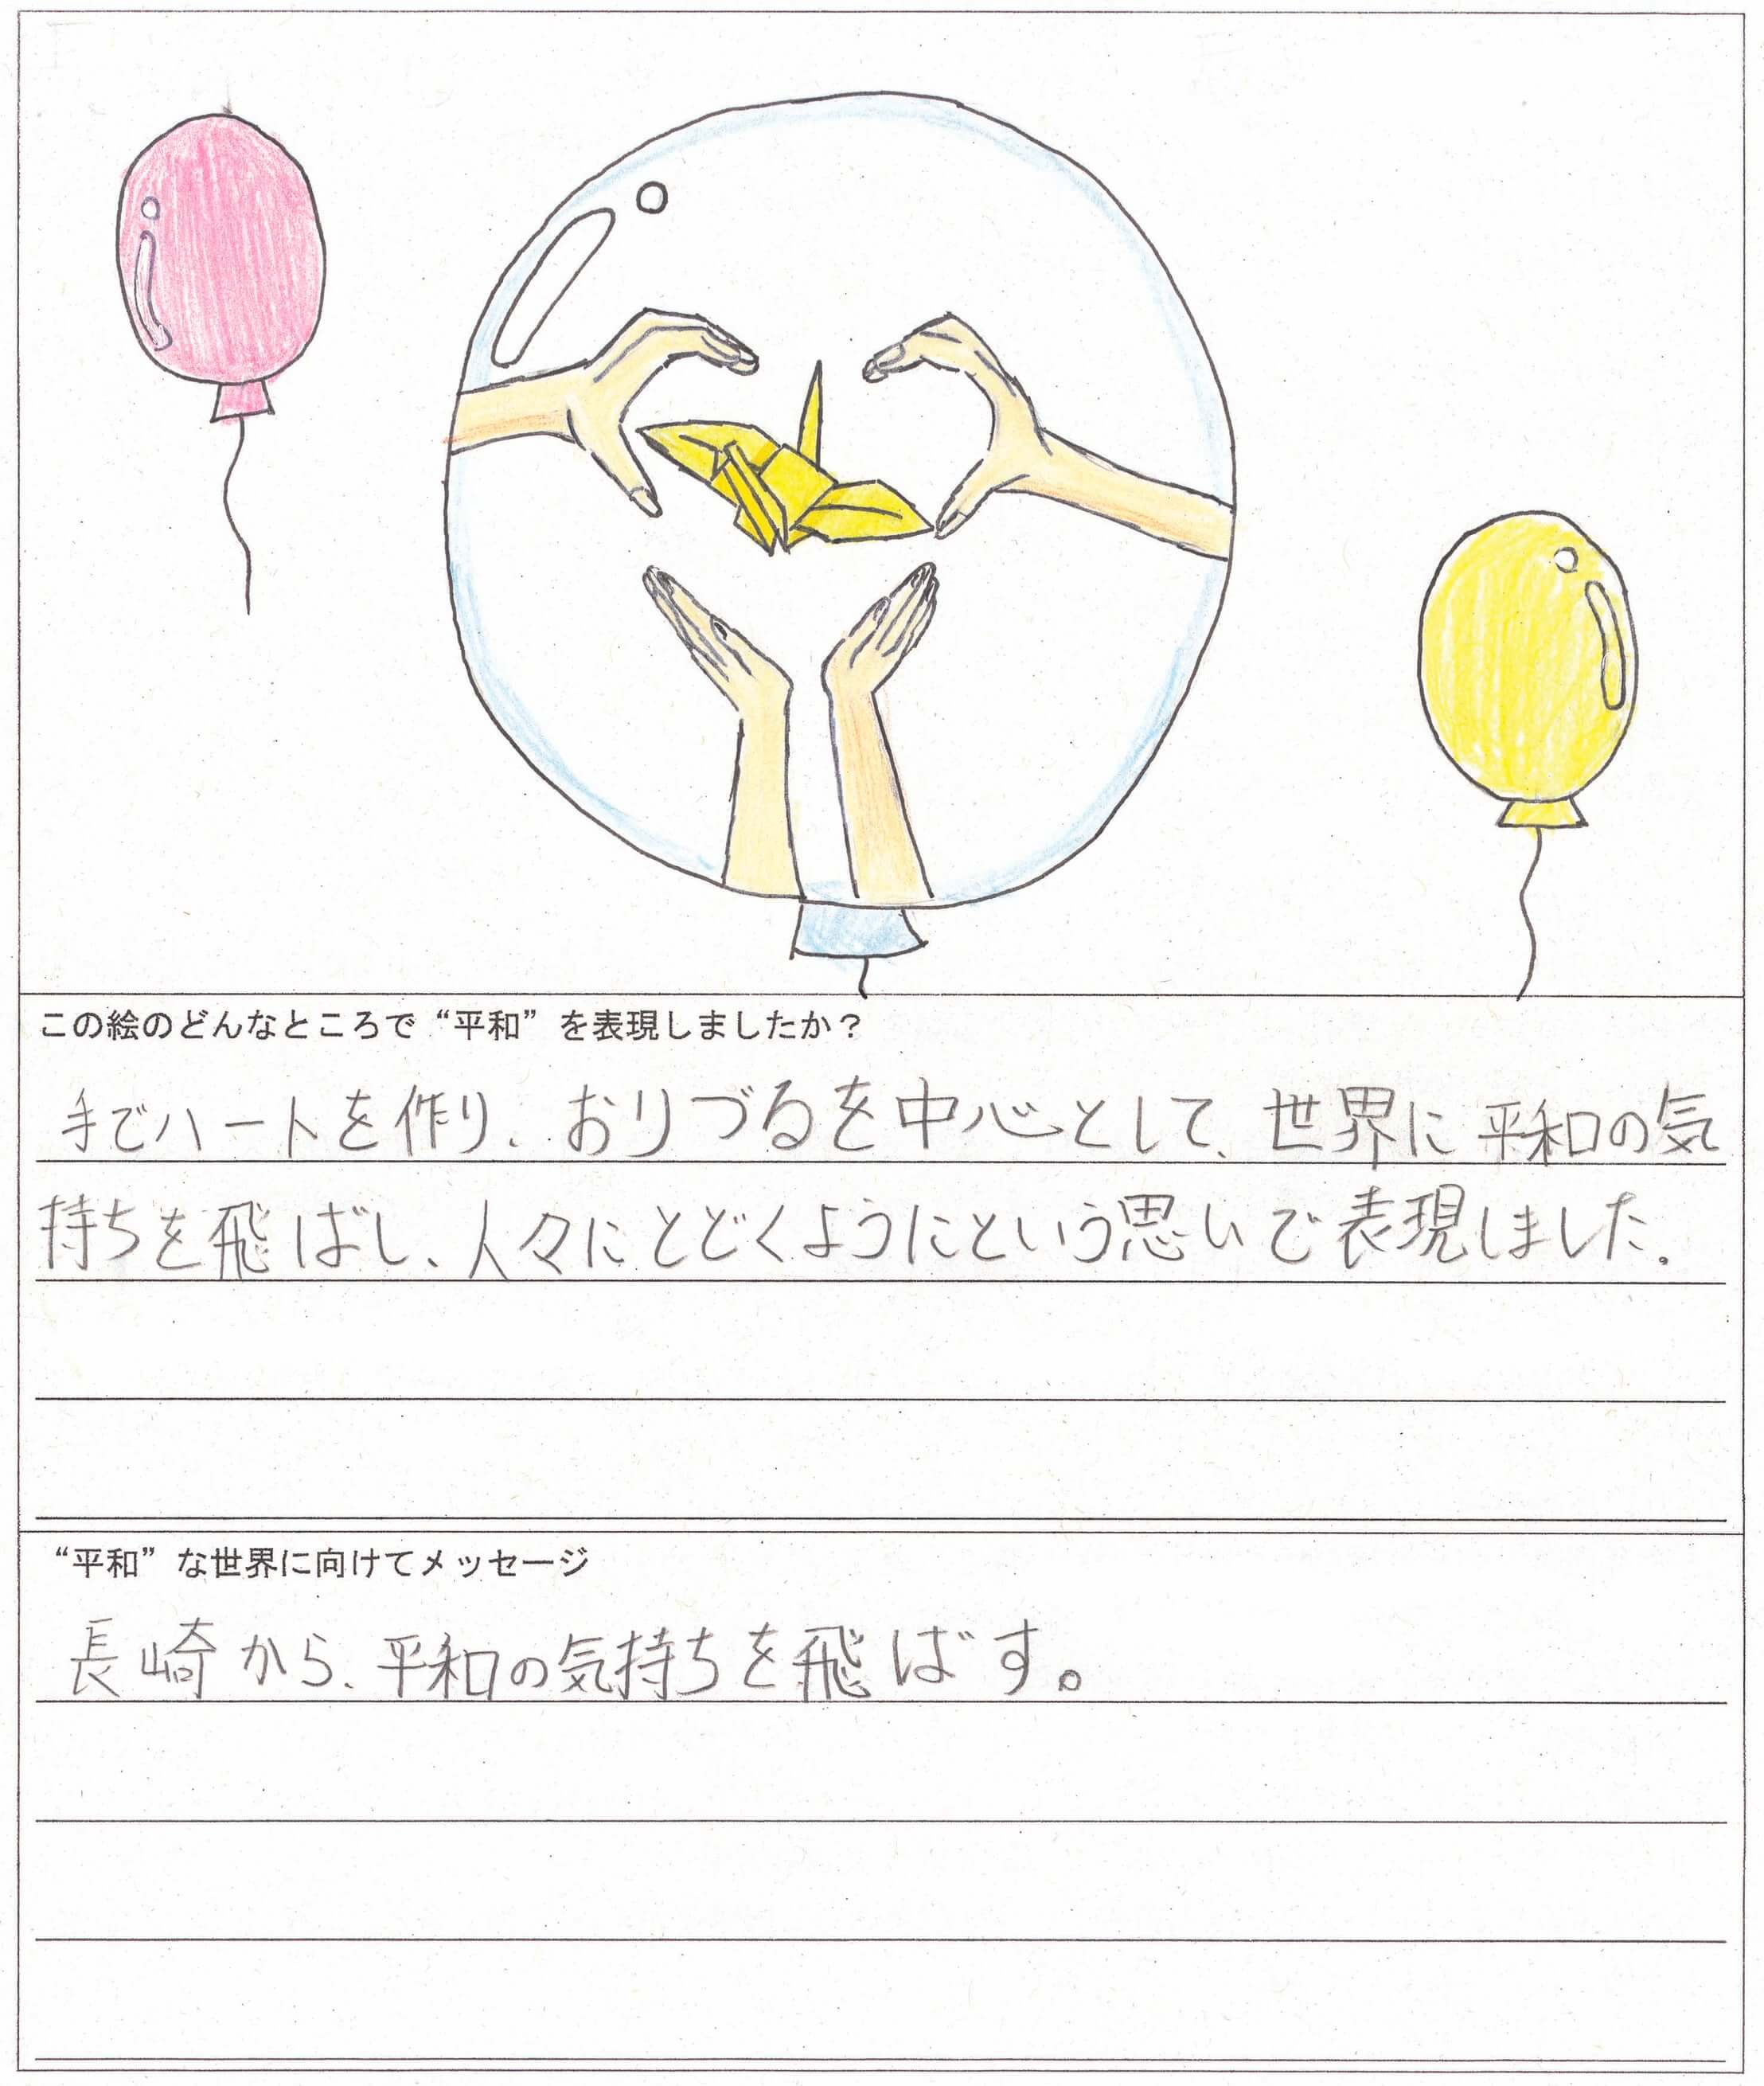 この絵のどんなところで“平和”を表現しましたか？
手でハートを作り、おりづるを中心として、世界に平和の気
持ちを飛ばし、人々にとどくようにという思いで表現しました。
“平和”な世界に向けてメッセージ
長崎から、平和の気持ちを飛ばす。